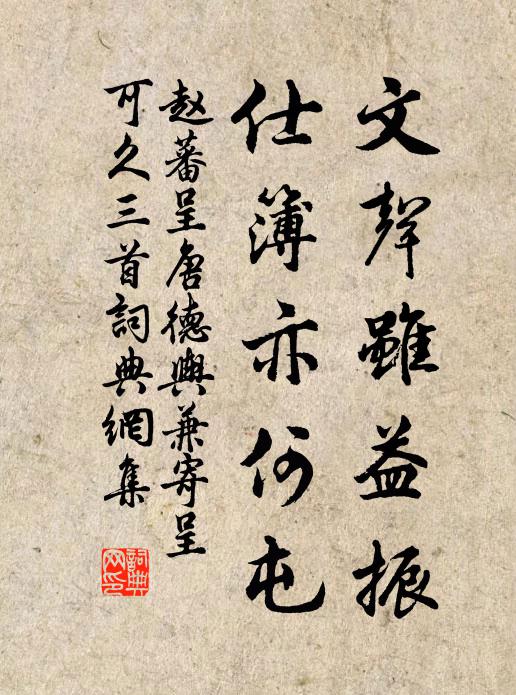 文聲雖益振
仕簿亦何屯
赵蕃呈唐德輿兼寄呈
可久三首詞典網集
詞典
网印